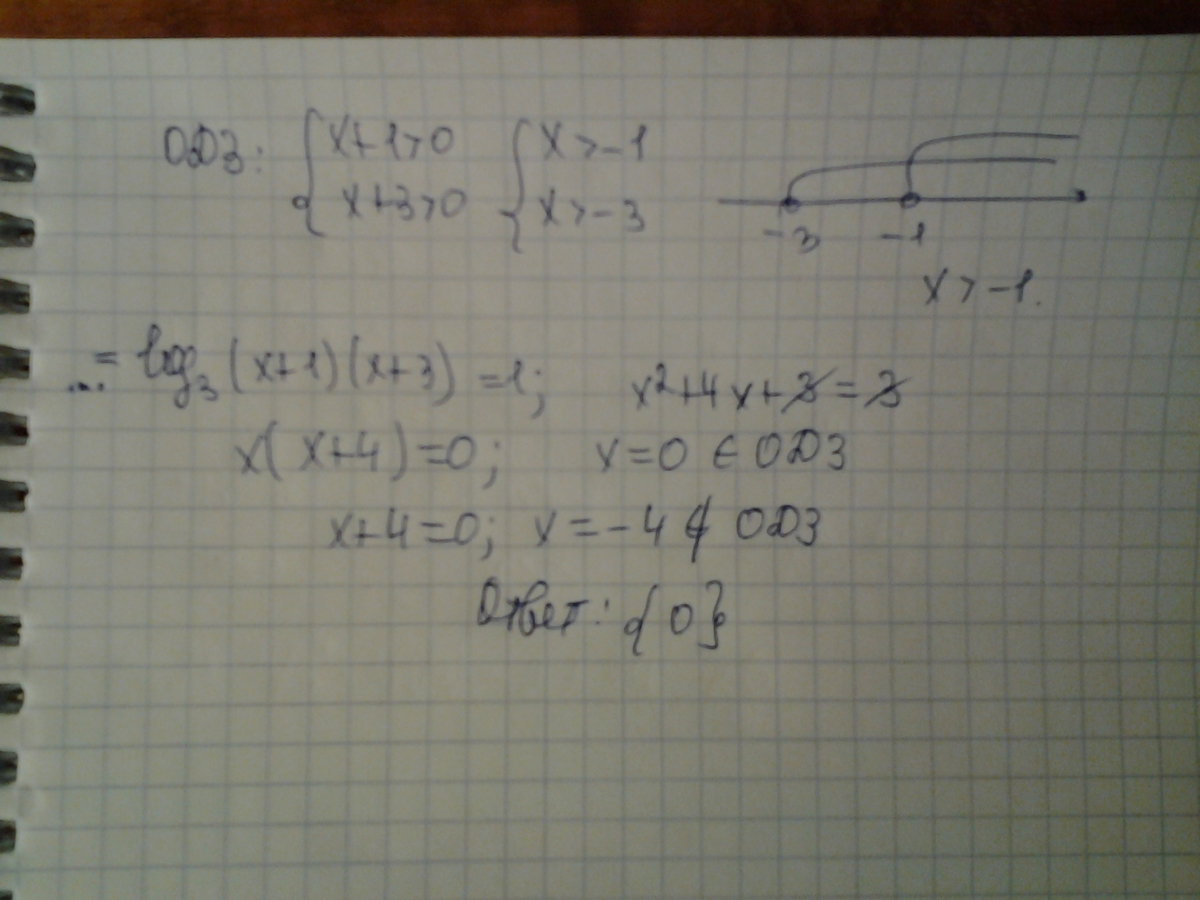 ОДЗ: { x+1>0 { x>-1
x+3>0 x>-3
-3 -1
x>-1.
...= log₃(x+1)(x+3)=1; x²+4x+3=3
x(x+4)=0; x=0 ∈ ОДЗ
x+4=0; x=-4 ∉ ОДЗ
Ответ: {0}